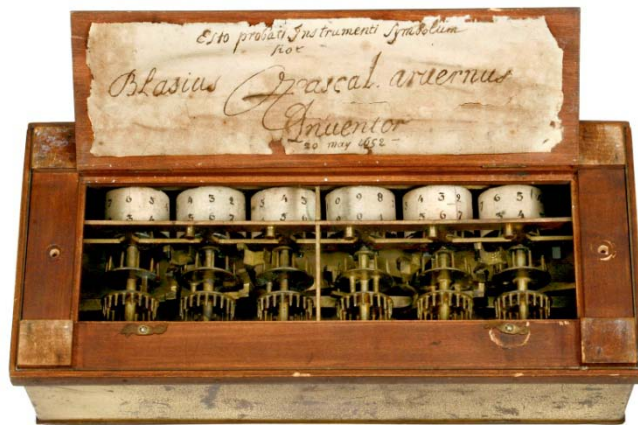 Esto probati Instrumenti Symbolum
hoc
Blasius Pascal. arvernus
Inventor
20 may 1652
7 6 8 4 3 2 5 4 3 0 9 8 4 3 2 7 6 5
3 4 5 6 0 4 5 6 7